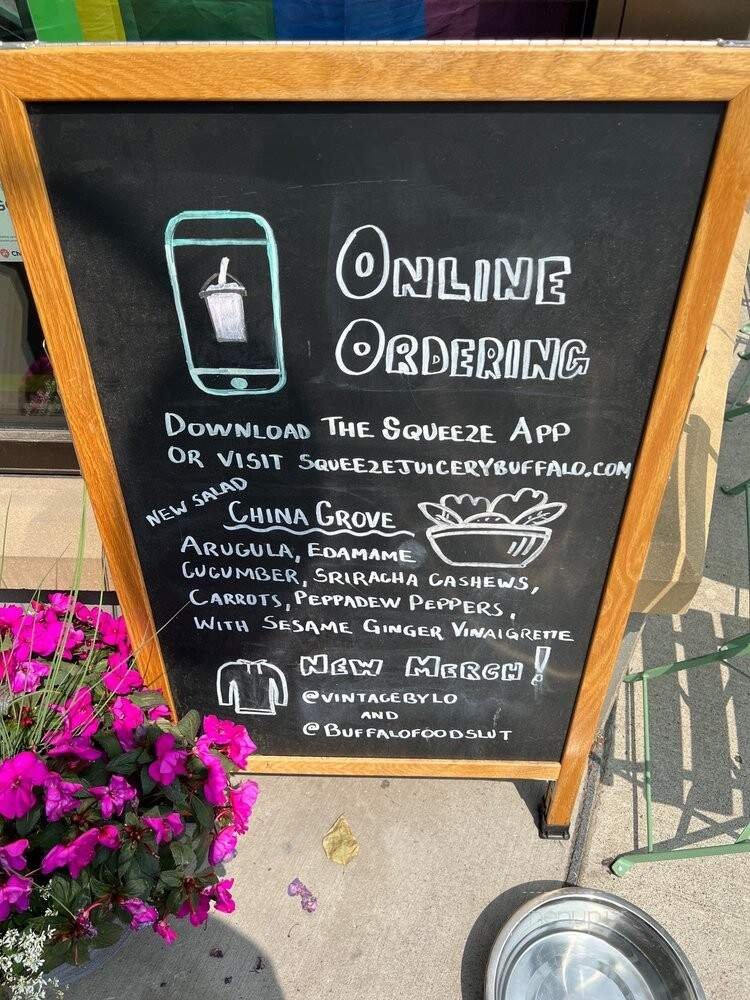 ONLINE
ORDERING
DOWNLOAD THE SQUEEZE APP
OR VISIT SQUEEZEJUICERYBUFFALO.COM
NEW SALAD
CHINA GROVE
ARUGULA, EDAMAME
CUCUMBER, SRIRACHA CASHEWS,
CARROTS, PEPPADEW PEPPERS,
WITH SESAME GINGER VINAIGRETTE
NEW MERCH!
@VINTAGEBYLO
AND
@BUFFALOFOODSLUT